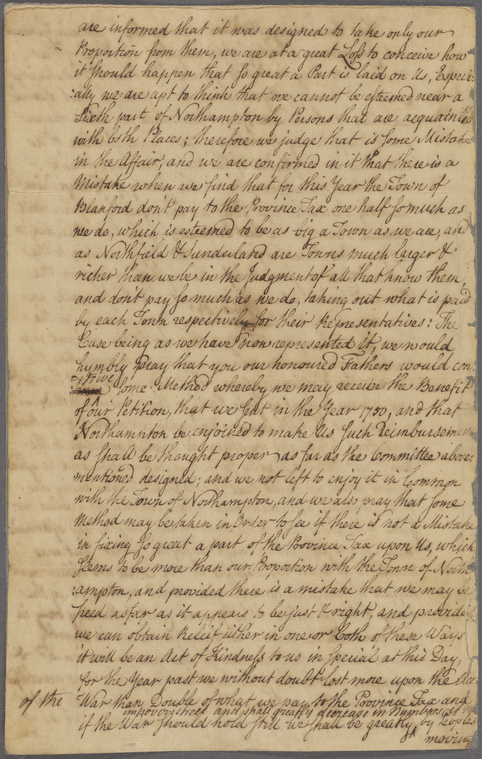 are informed that it was designed to take only our
Proportion from them, we are at a great Loss to conceive how
it should happen that so great a Part is laid on Us, Especi-
:ally we are apt to think that we cannot be esteemed near a
Sixth part of Northampton by Persons that are acquainted
with both Places; therefore we judge that is some Mistake
in the Affair, and we are confirmed in it that there is a
Mistake when we find that for this Year the Town of
Blanford don't pay to the Province Tax one half so much as
we do, which is esteemed to be as big a Town as we are, and
as Northfield & Sunderland are Towns much larger &
richer than we be in the Judgment of all that know them,
and don't pay so much as we do, taking out what is paid
by each Town respectively for their Representatives: The
Case being as we have now represented it, we would
humbly pray that you our honoured Fathers would con-
-trive some Method whereby we may receive the Benefit
of our Petition, that we sent in the Year 1750, and that
Northamnton be enjoined to make Us such Reimbursement
as shall be thought proper as far as the Committee above
mentioned designed; and we not left to enjoy it in Common
with the Town of Northampton, and we also pray that some
Method may be taken in Order to see if there is not a Mistake
in fixing so great a part of the Province Tax upon Us, which
seems to be more than our Proportion with the Town of North
:ampton, and provided there is a mistake that we may be
freed as far as it appears to be just & right, and provided
we can obtain Relief either in one or both of these Ways
it will be an Act of Kindness to us in special at this Day,
for the Year past we without doubt lost more upon the
of the War than Double of what we pay to the Province Tax and
and shall greatly decrease in Numbers
if the War should hold still we shall be greatly by Peoples
moving